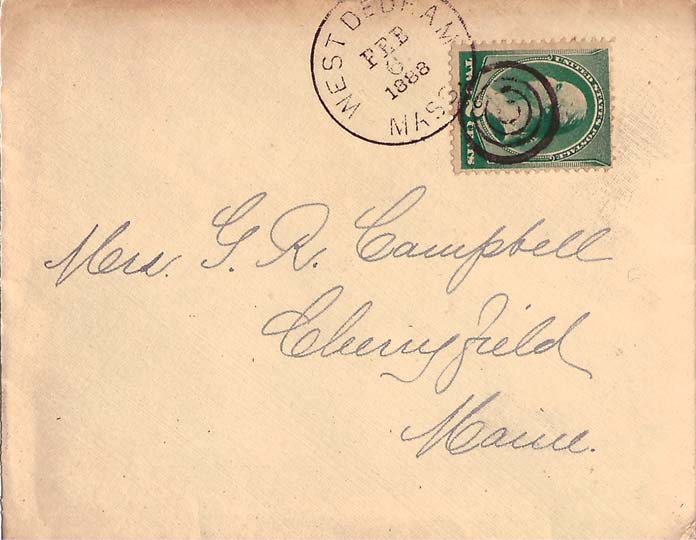 WEST DEDHAM
FEB
6
1888
MASS.
UNITED STATES POSTAGE
TWO CENTS
Mrs. G. R. Campbell
Cherryfield
Maine.